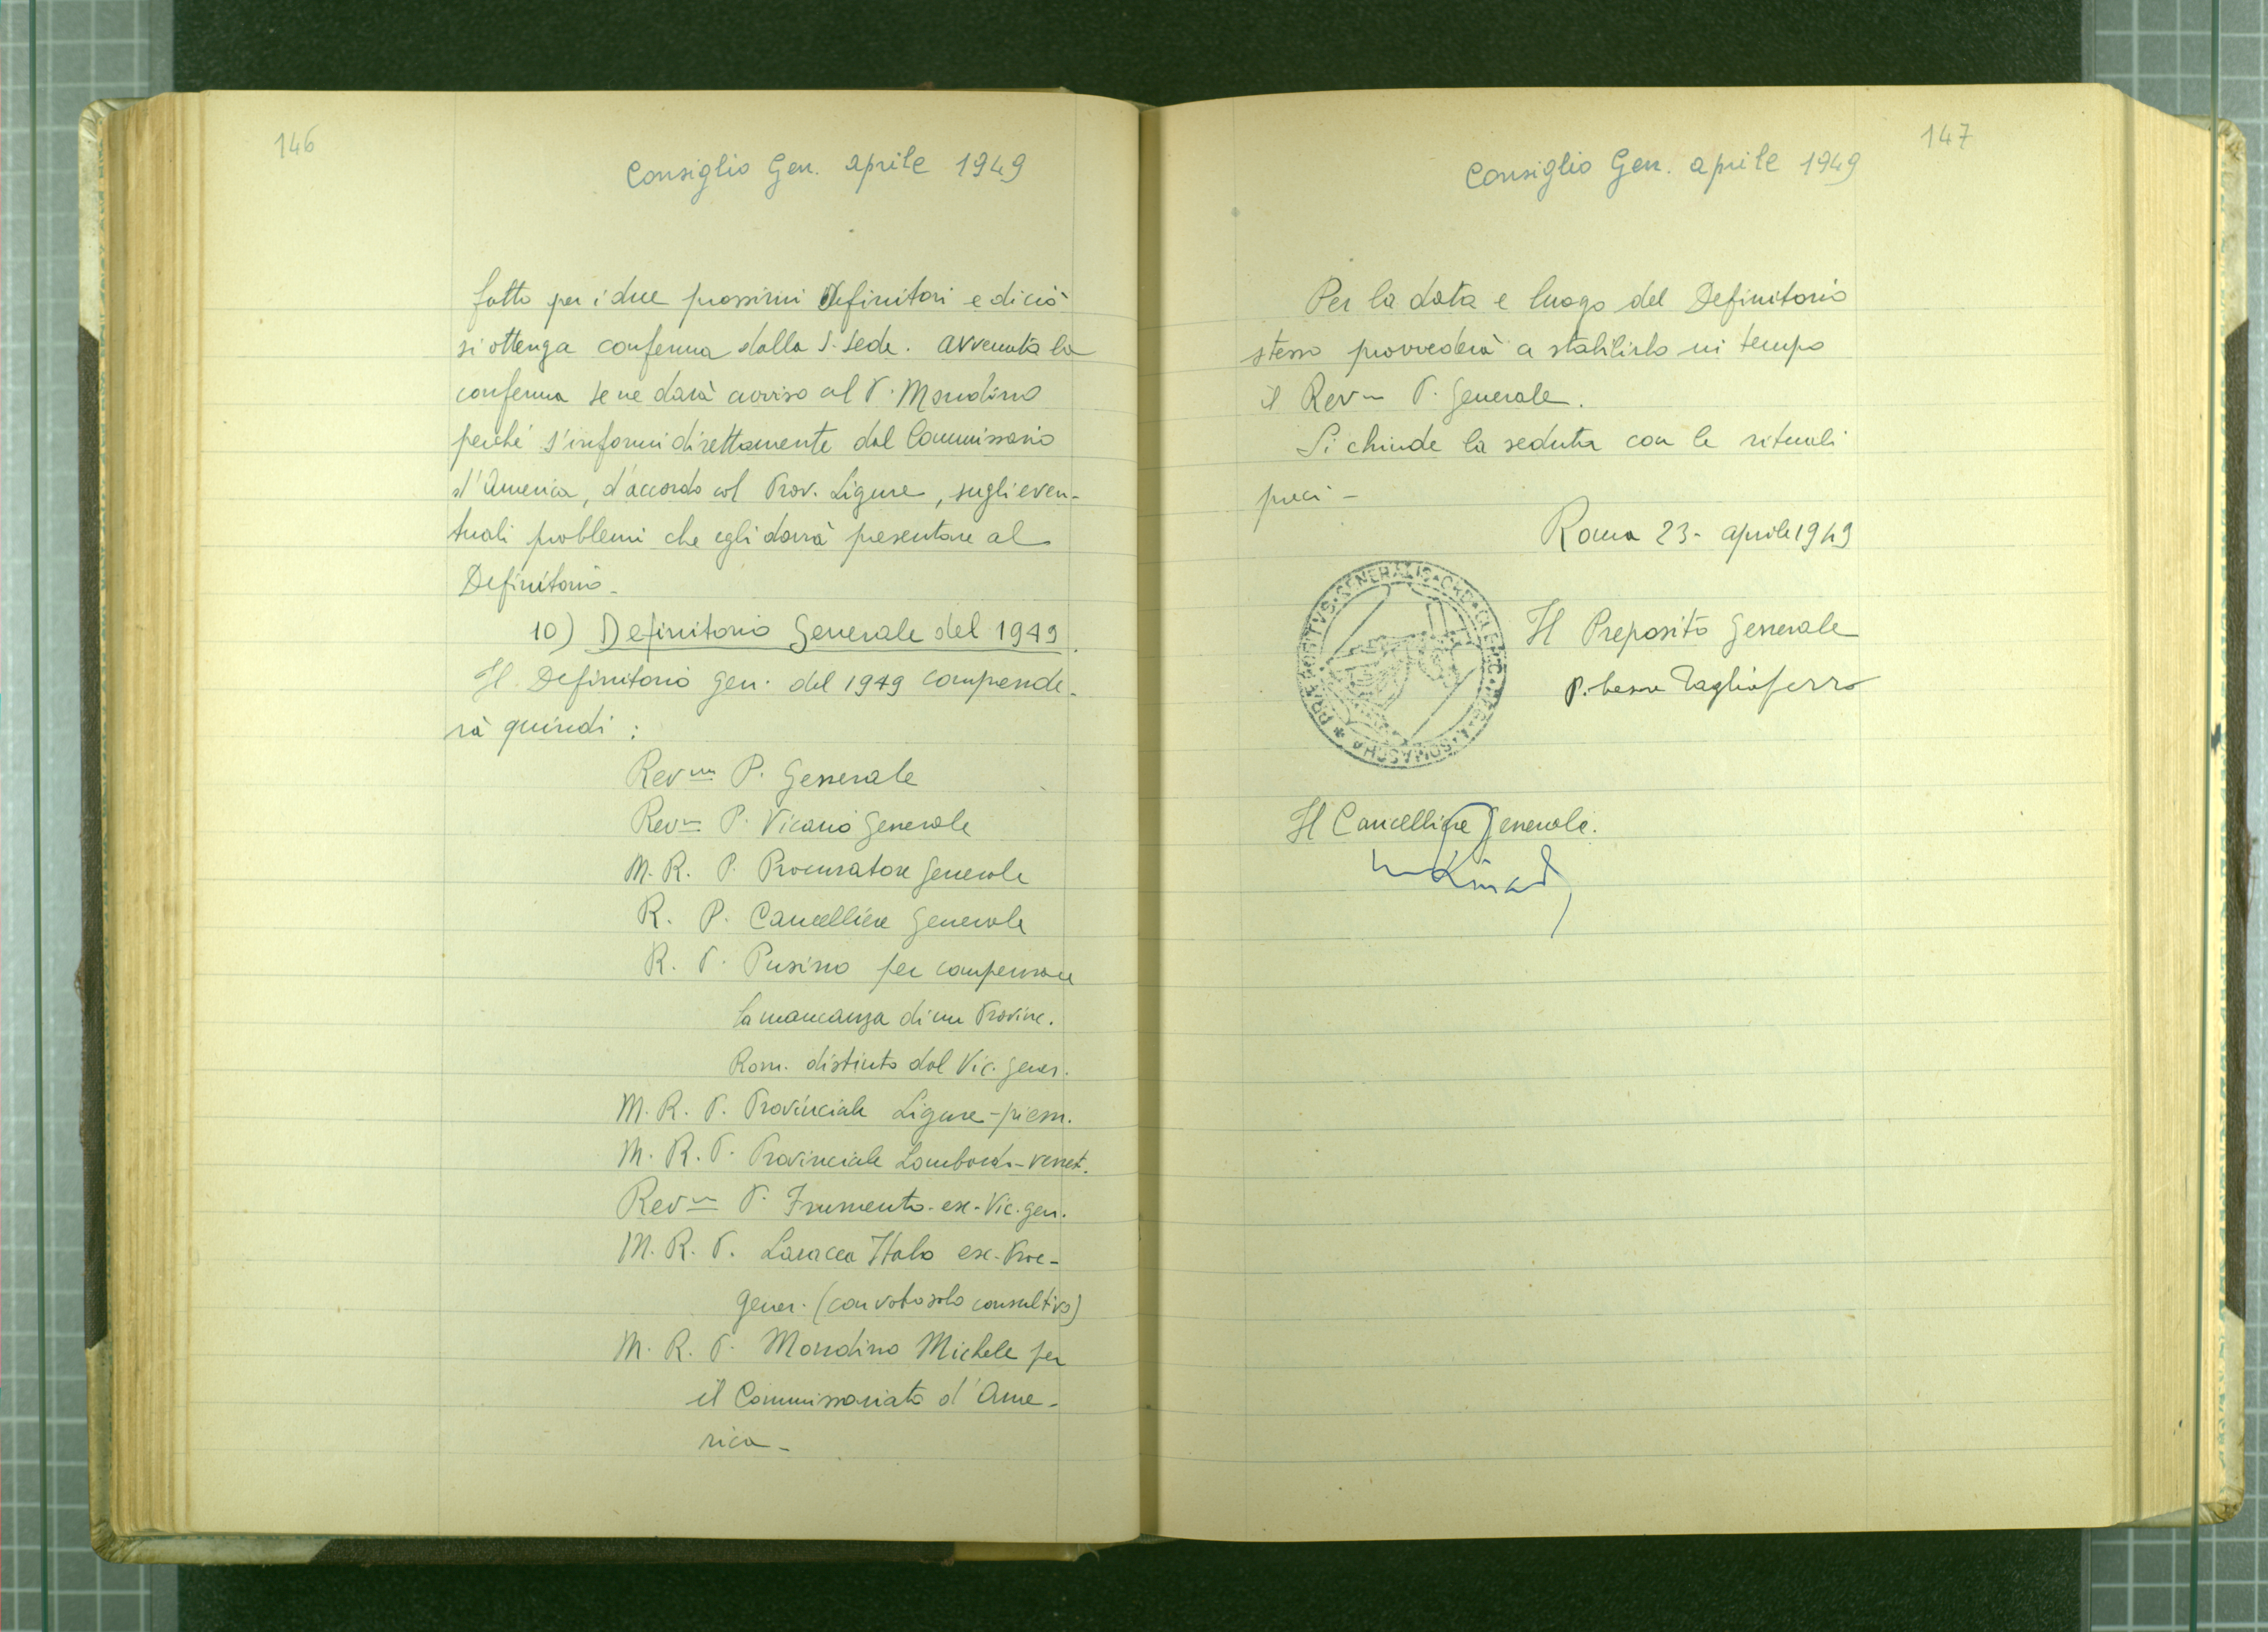 146
Consiglio Gen. aprile 1949
fatto per i due prossimi Definitori e di ciò
si ottenga conferma dalla S. Sede. Avvenuta la
conferma se ne darà avviso al P. Mondino
perché s'informi direttamente dal Commissario
d'America, d'accordo col Prov. Ligure, sugli even-
tuali problemi che egli dovrà presentare al
Definitorio -
10) Definitorio Generale del 1949.
Il Definitorio Gen. del 1949 comprende-
rà quindi :
Rev.mo P. Generale
Rev.mo P. Vicario Generale
M. R. P. Procuratore Generale
R. P. Cancelliere Generale
R. P. Pusino per compensare
la mancanza di un Provinc.
Rom. distinto dal Vic. gener.
M. R. P. Provinciale Ligure-piem.
M. R. P. Provinciale Lombardo-venet.
Rev.mo P. Frumento - ex - Vic. gen.
M. R. P. Laracca Italo ex - Proc -
gener. (con voto solo consultivo)
M. R. P. Mondino Michele per
il Commissariato d'Ame-
rica -
147
Consiglio Gen. aprile 1949
Per la data e luogo del Definitorio
stesso provvederà a stabilirlo in tempo
il Rev.mo P. Generale.
Si chiude la seduta con le rituali
preci -
Roma 23 - aprile 1949
PRAEPOSITVS · GENERALIS · ORD · CLERIC · REG · A · SOMASCHA
Il Preposito Generale
P. Cesare Tagliaferro
Il Cancelliere Generale.